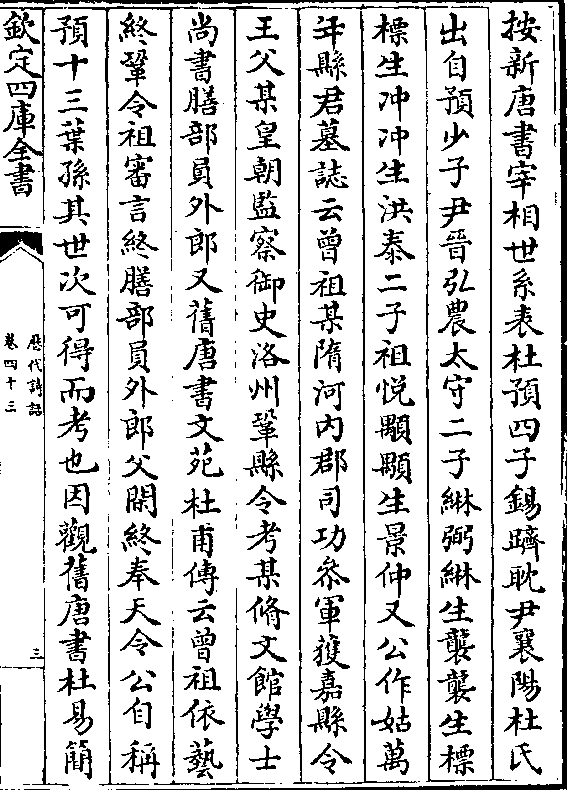 按新唐書宰相世系表杜預四子錫躋耽尹襄陽杜氏
出自預少子尹晉弘農太守二子綝弼綝生襲襲生標
標生冲冲生洪泰二子祖悅顒顒生景仲又公作姑萬
年縣君墓誌云曾祖某隋河內郡司功叅軍獲嘉縣令
王父某皇朝監察御史洛州鞏縣令考某脩文館學士
尚書膳部員外郎又舊唐書文苑杜甫傳云曾祖依藝
終鞏令祖審言終膳部員外郎父閑終奉天令公自稱
預十三葉孫其世次可得而考也因觀舊唐書杜易簡
欽定四庫全書
歷代詩話
卷四十三
三